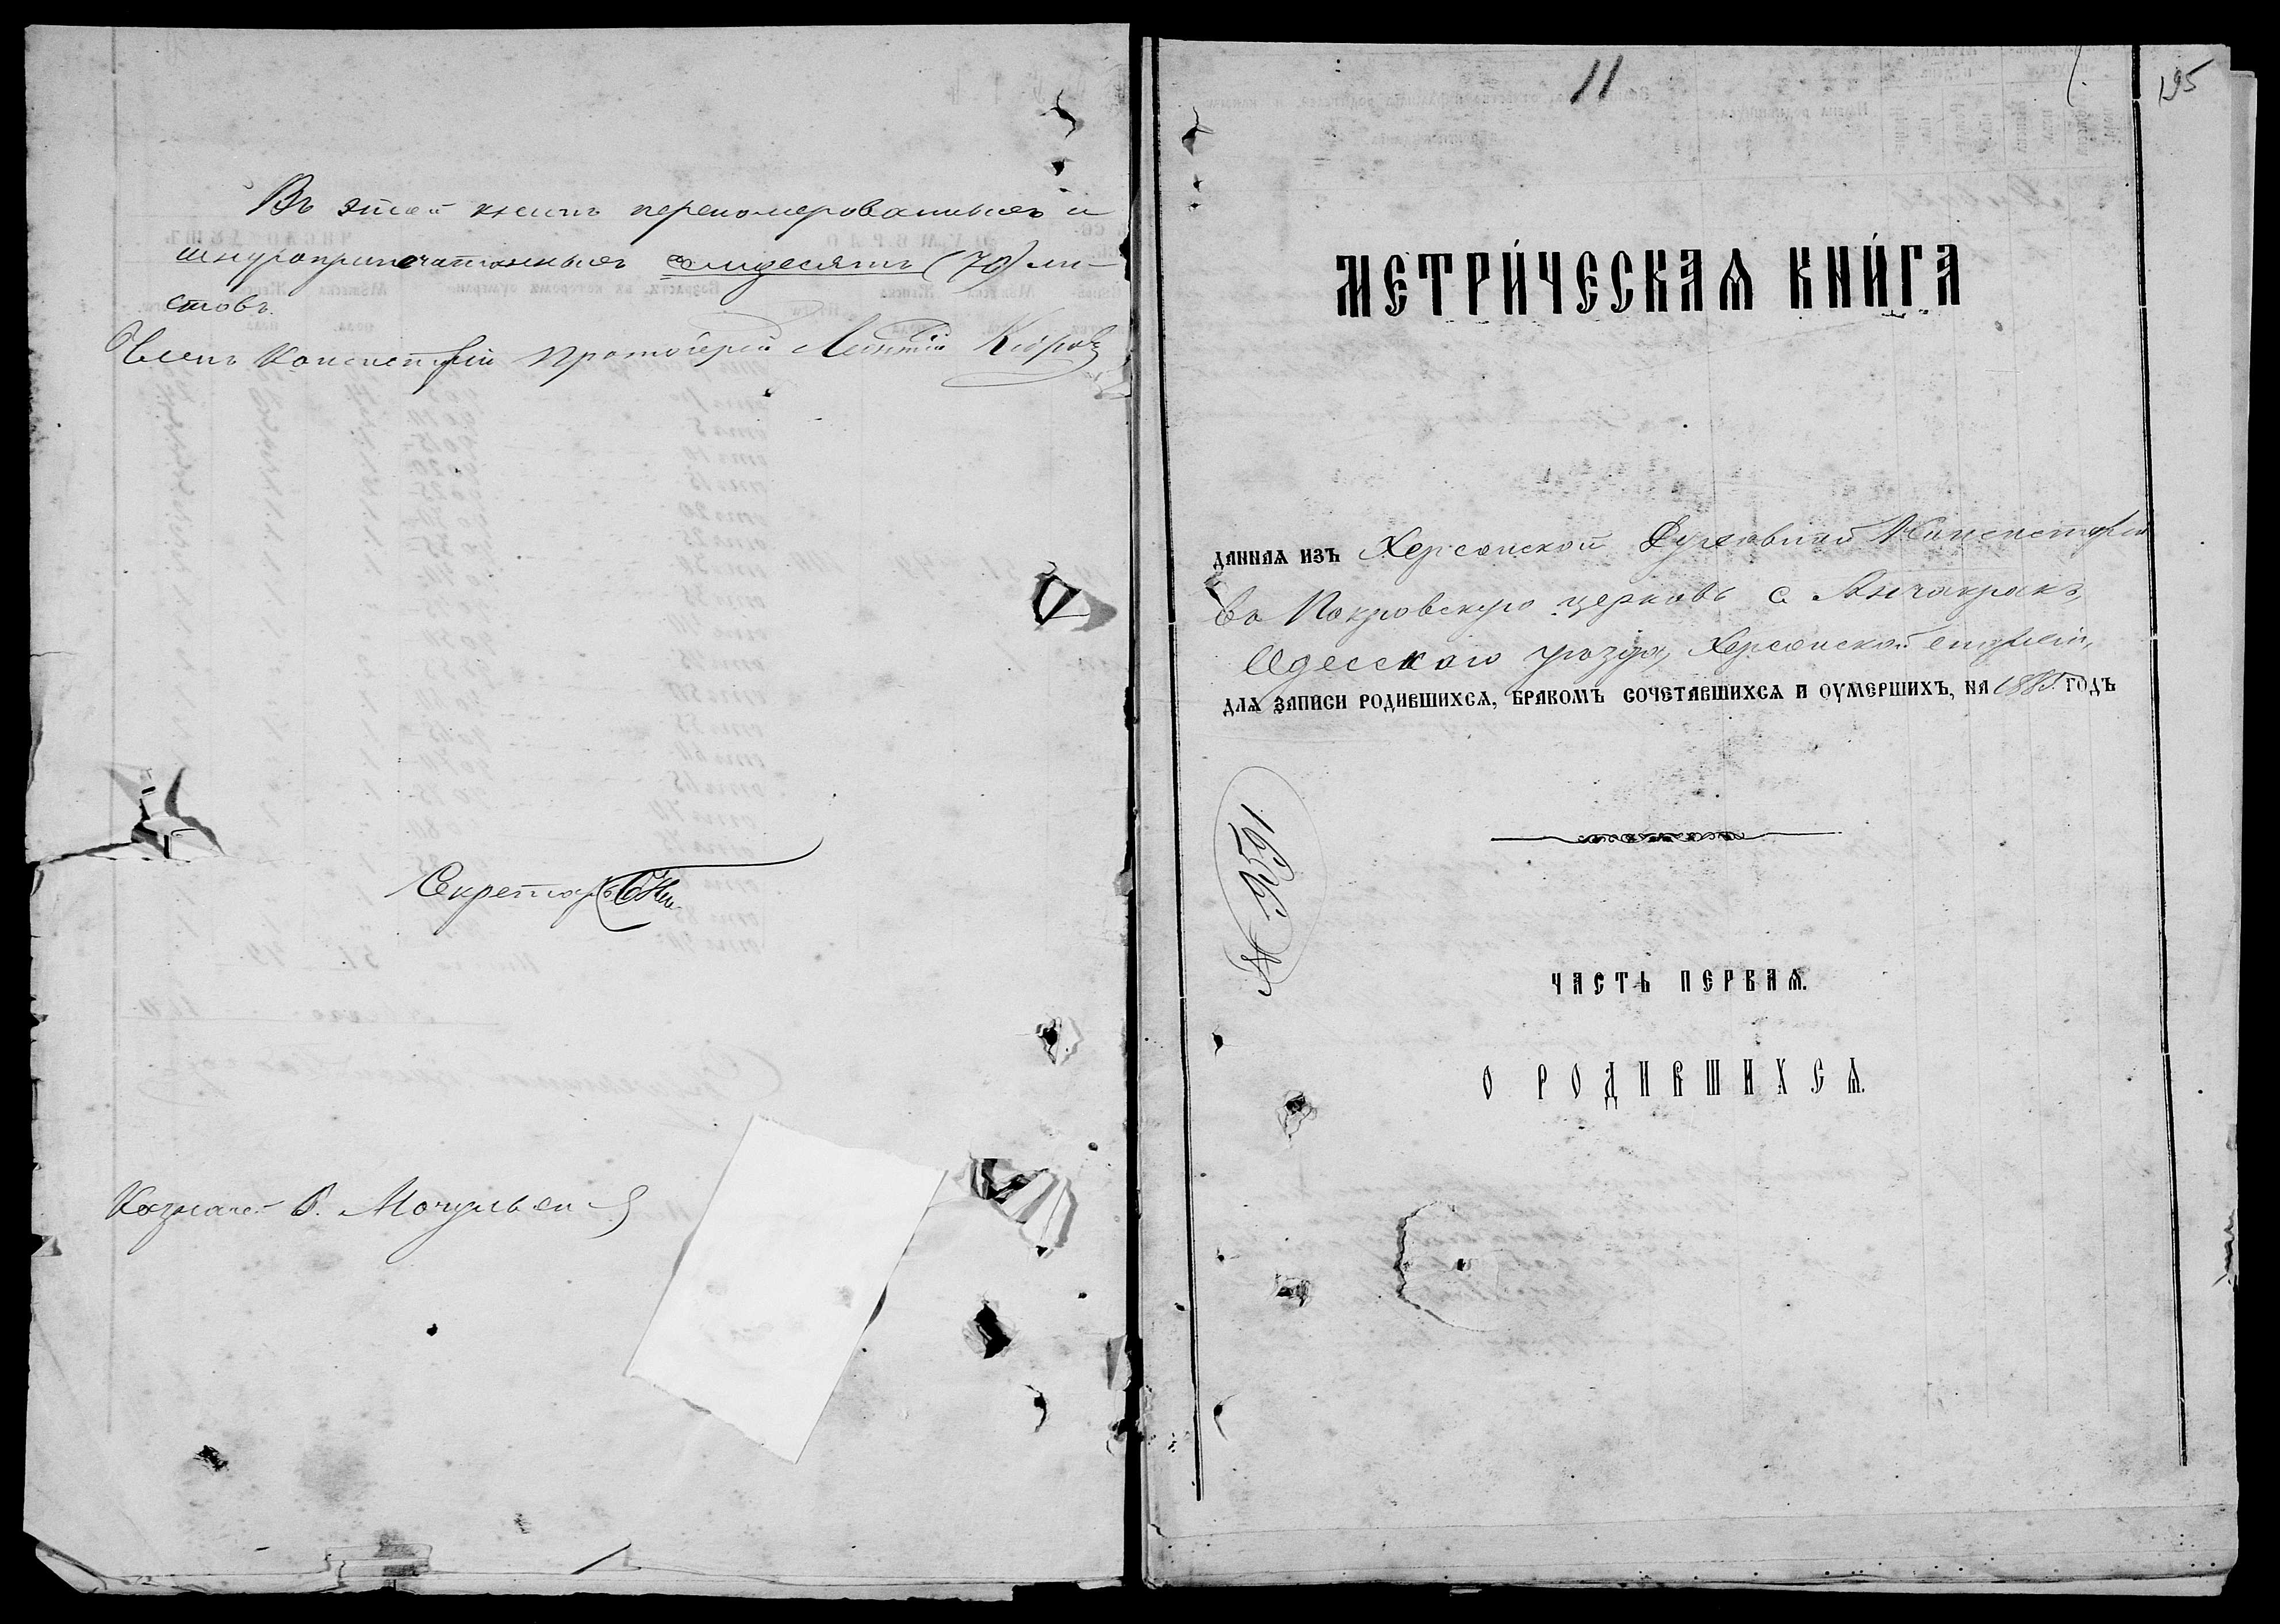 Въ этой книгѣ перенумерованныхъ и
шнуроприпечатанныхъ семдесятъ (70) ли-
стовъ.
Членъ Консисторіи Протоіерей Леонтій
Секретарь
Казначей В. Мочульскій
11
195
МЕТРИ́ЧЕСКАѦ КНИ́ГА
ДАННАѦ ИЗЪ Херсонской Духовной Консисторіи
въ Покровскую церковь с. Анчакракъ,
Одесскаго уѣзда, Херсонской епархіи,
ДЛѦ ЗАПИСИ РОДИВШИХСѦ, БРАКОМЪ СОЧЕТАВШИХСѦ И ОУМЕРШИХЪ, НА 1885 ГОДЪ
№ 9591
ЧАСТЬ ПЕРВАѦ.
О РОДИВШИХСѦ.